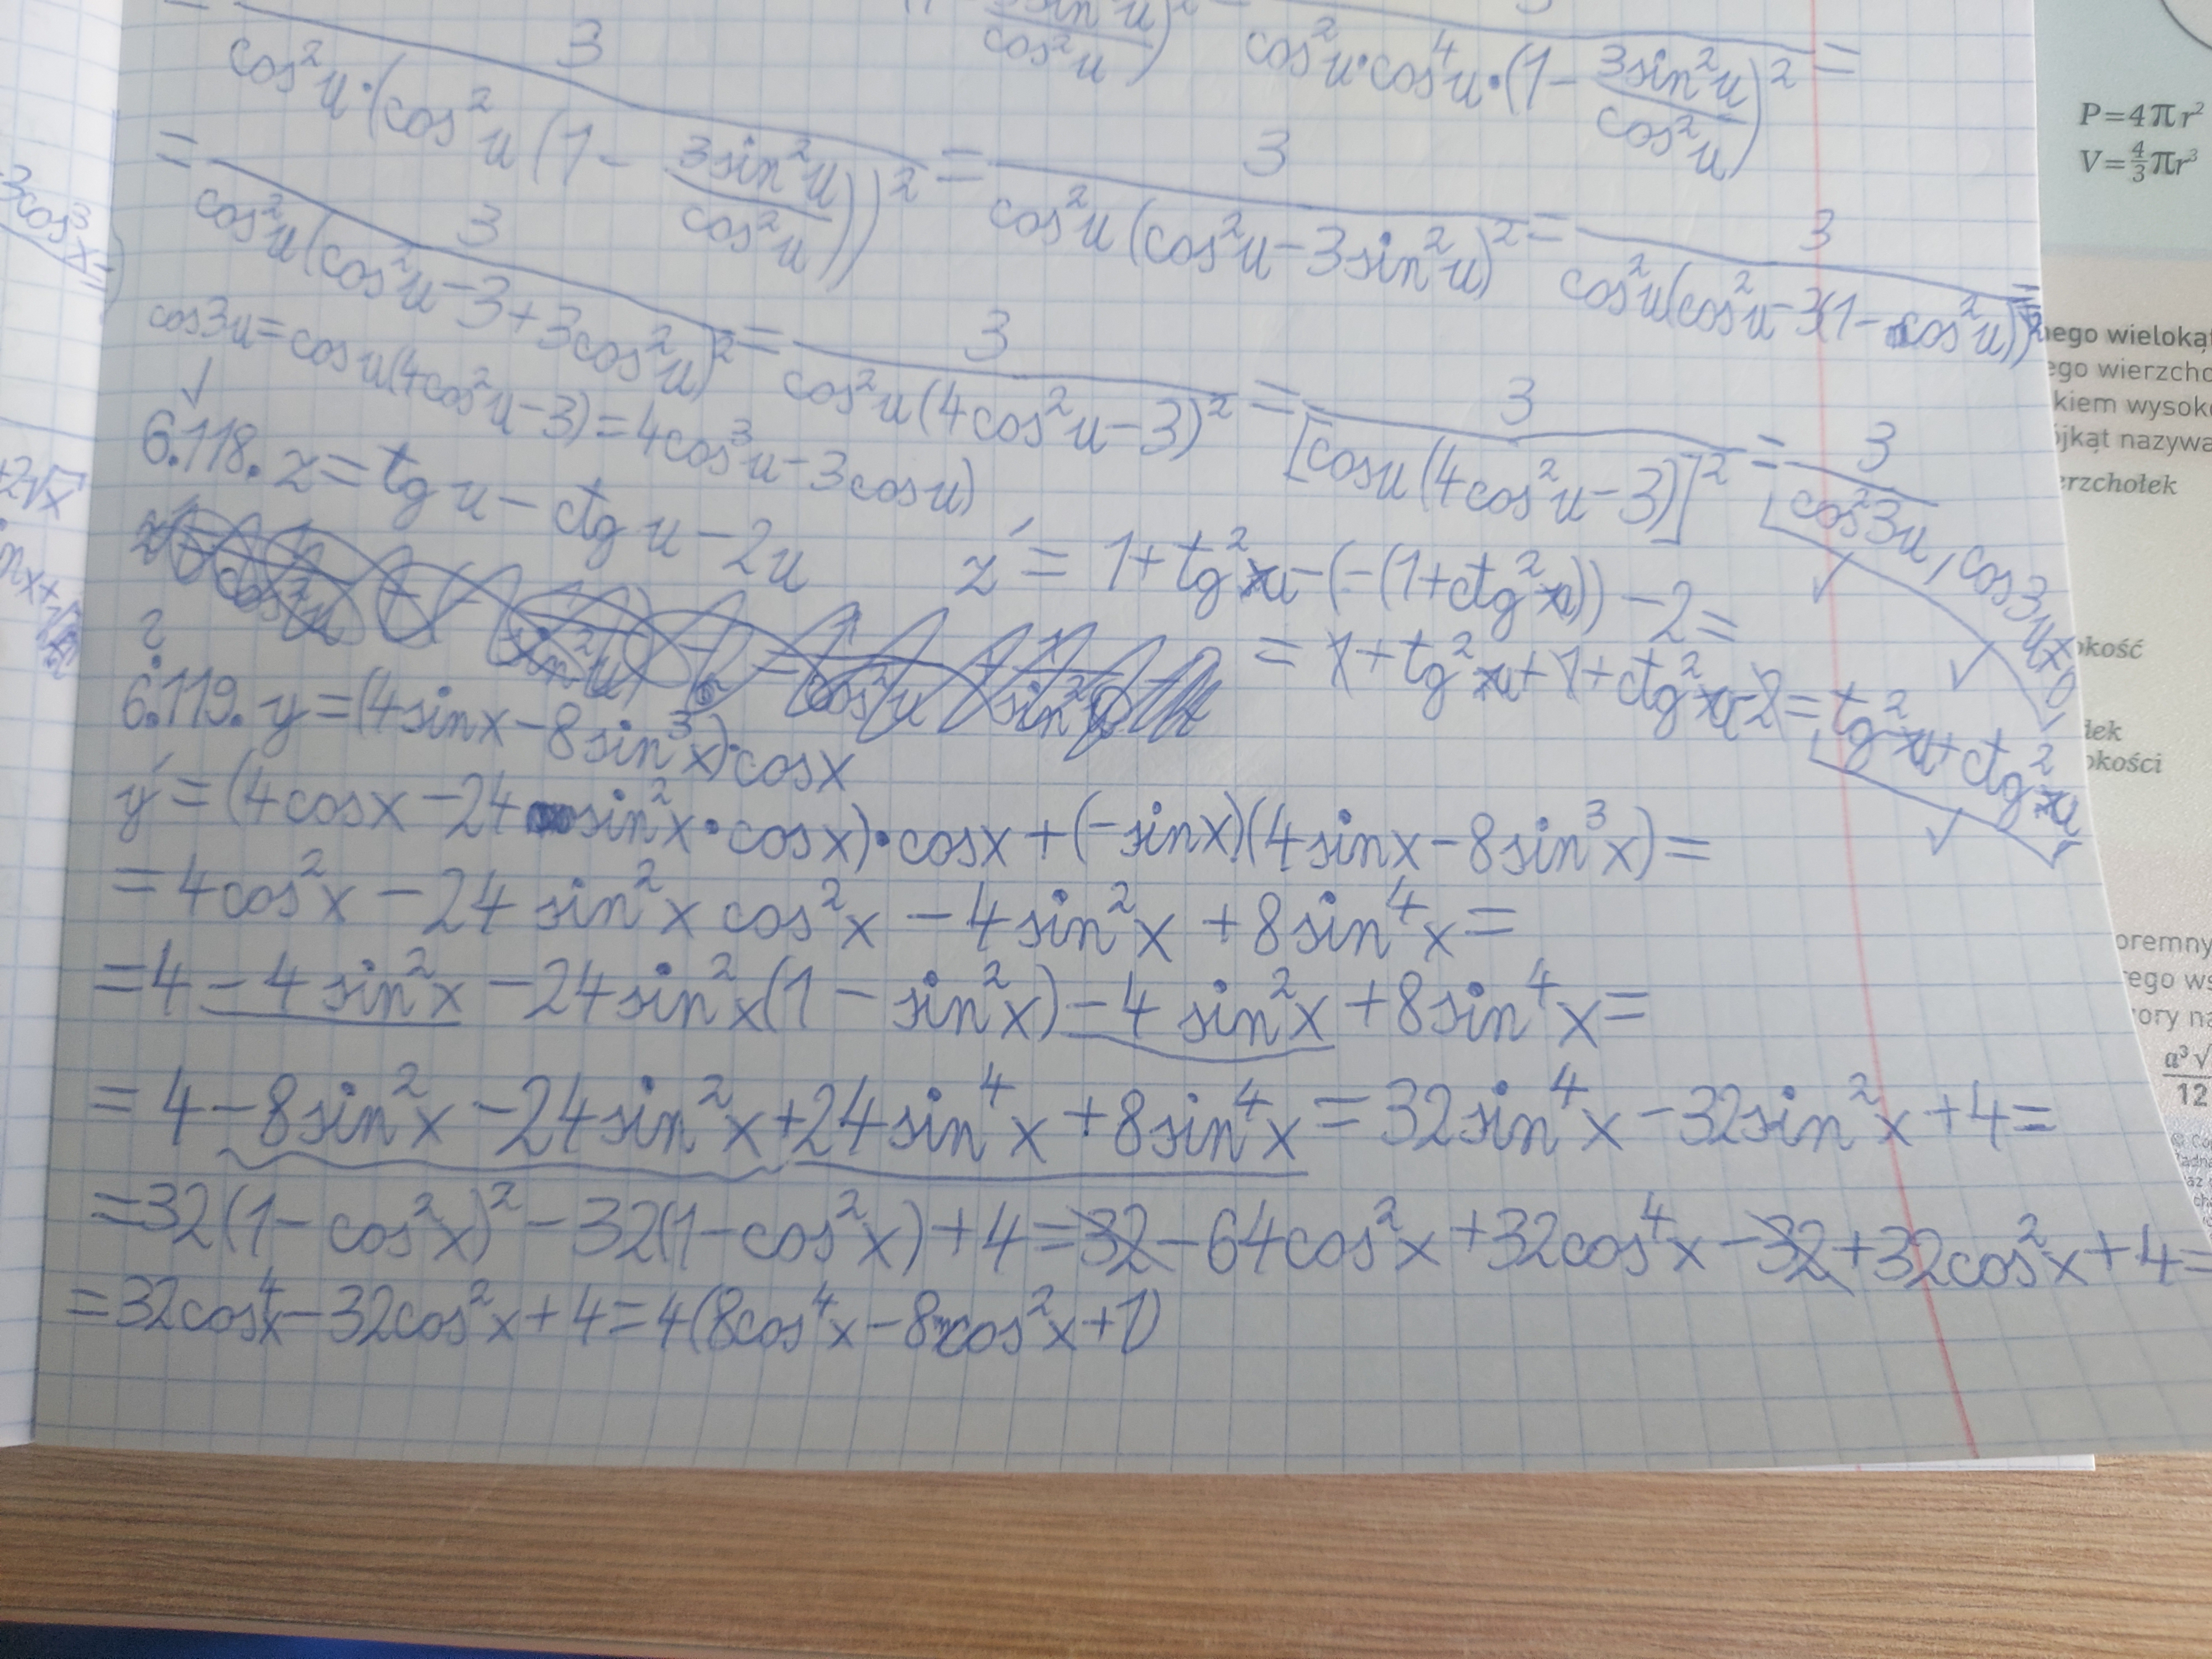 3 / cos²u·(cos²u(1 - 3sin²u/cos²u))² = 3 / cos²u·cos⁴u·(1 - 3sin²u/cos²u)² =
= 3 / cos²u(cos²u-3+3cos²u)² = 3 / cos²u(4cos²u-3)² = 3 / [cosu(4cos²u-3)]² = 3 / cos²3u, cos3u≠0
= 3 / cos²u(cos²u-3sin²u)² = 3 / cos²u(cos²u-3(1-cos²u))² =
cos3u = cosu(4cos²u-3) = 4cos³u-3cosu)
✓
6.118. z = tg u - ctg u - 2u
z' = 1+tg²u-(-(1+ctg²u))-2 =
= 1+tg²u+1+ctg²u-2 = tg²u+ctg²u
?
6.119. y = (4sinx-8sin³x)·cosx
y' = (4cosx-24sin²x·cosx)·cosx+(-sinx)(4sinx-8sin³x) =
= 4cos²x-24sin²x cos²x-4sin²x+8sin⁴x =
= 4-4sin²x-24sin²x(1-sin²x)-4sin²x+8sin⁴x =
= 4-8sin²x-24sin²x+24sin⁴x+8sin⁴x = 32sin⁴x-32sin²x+4 =
= 32(1-cos²x)²-32(1-cos²x)+4 = 32-64cos²x+32cos⁴x-32+32cos²x+4 =
= 32cos⁴x-32cos²x+4 = 4(8cos⁴x-8cos²x+1)
3cos³x =
+2√x
P=4πr²
V=4/3πr³
nego wieloką
ego wierzcho
kiem wysok
ójkąt nazywa
erzchołek
okość
okości
oremny
a³√
12